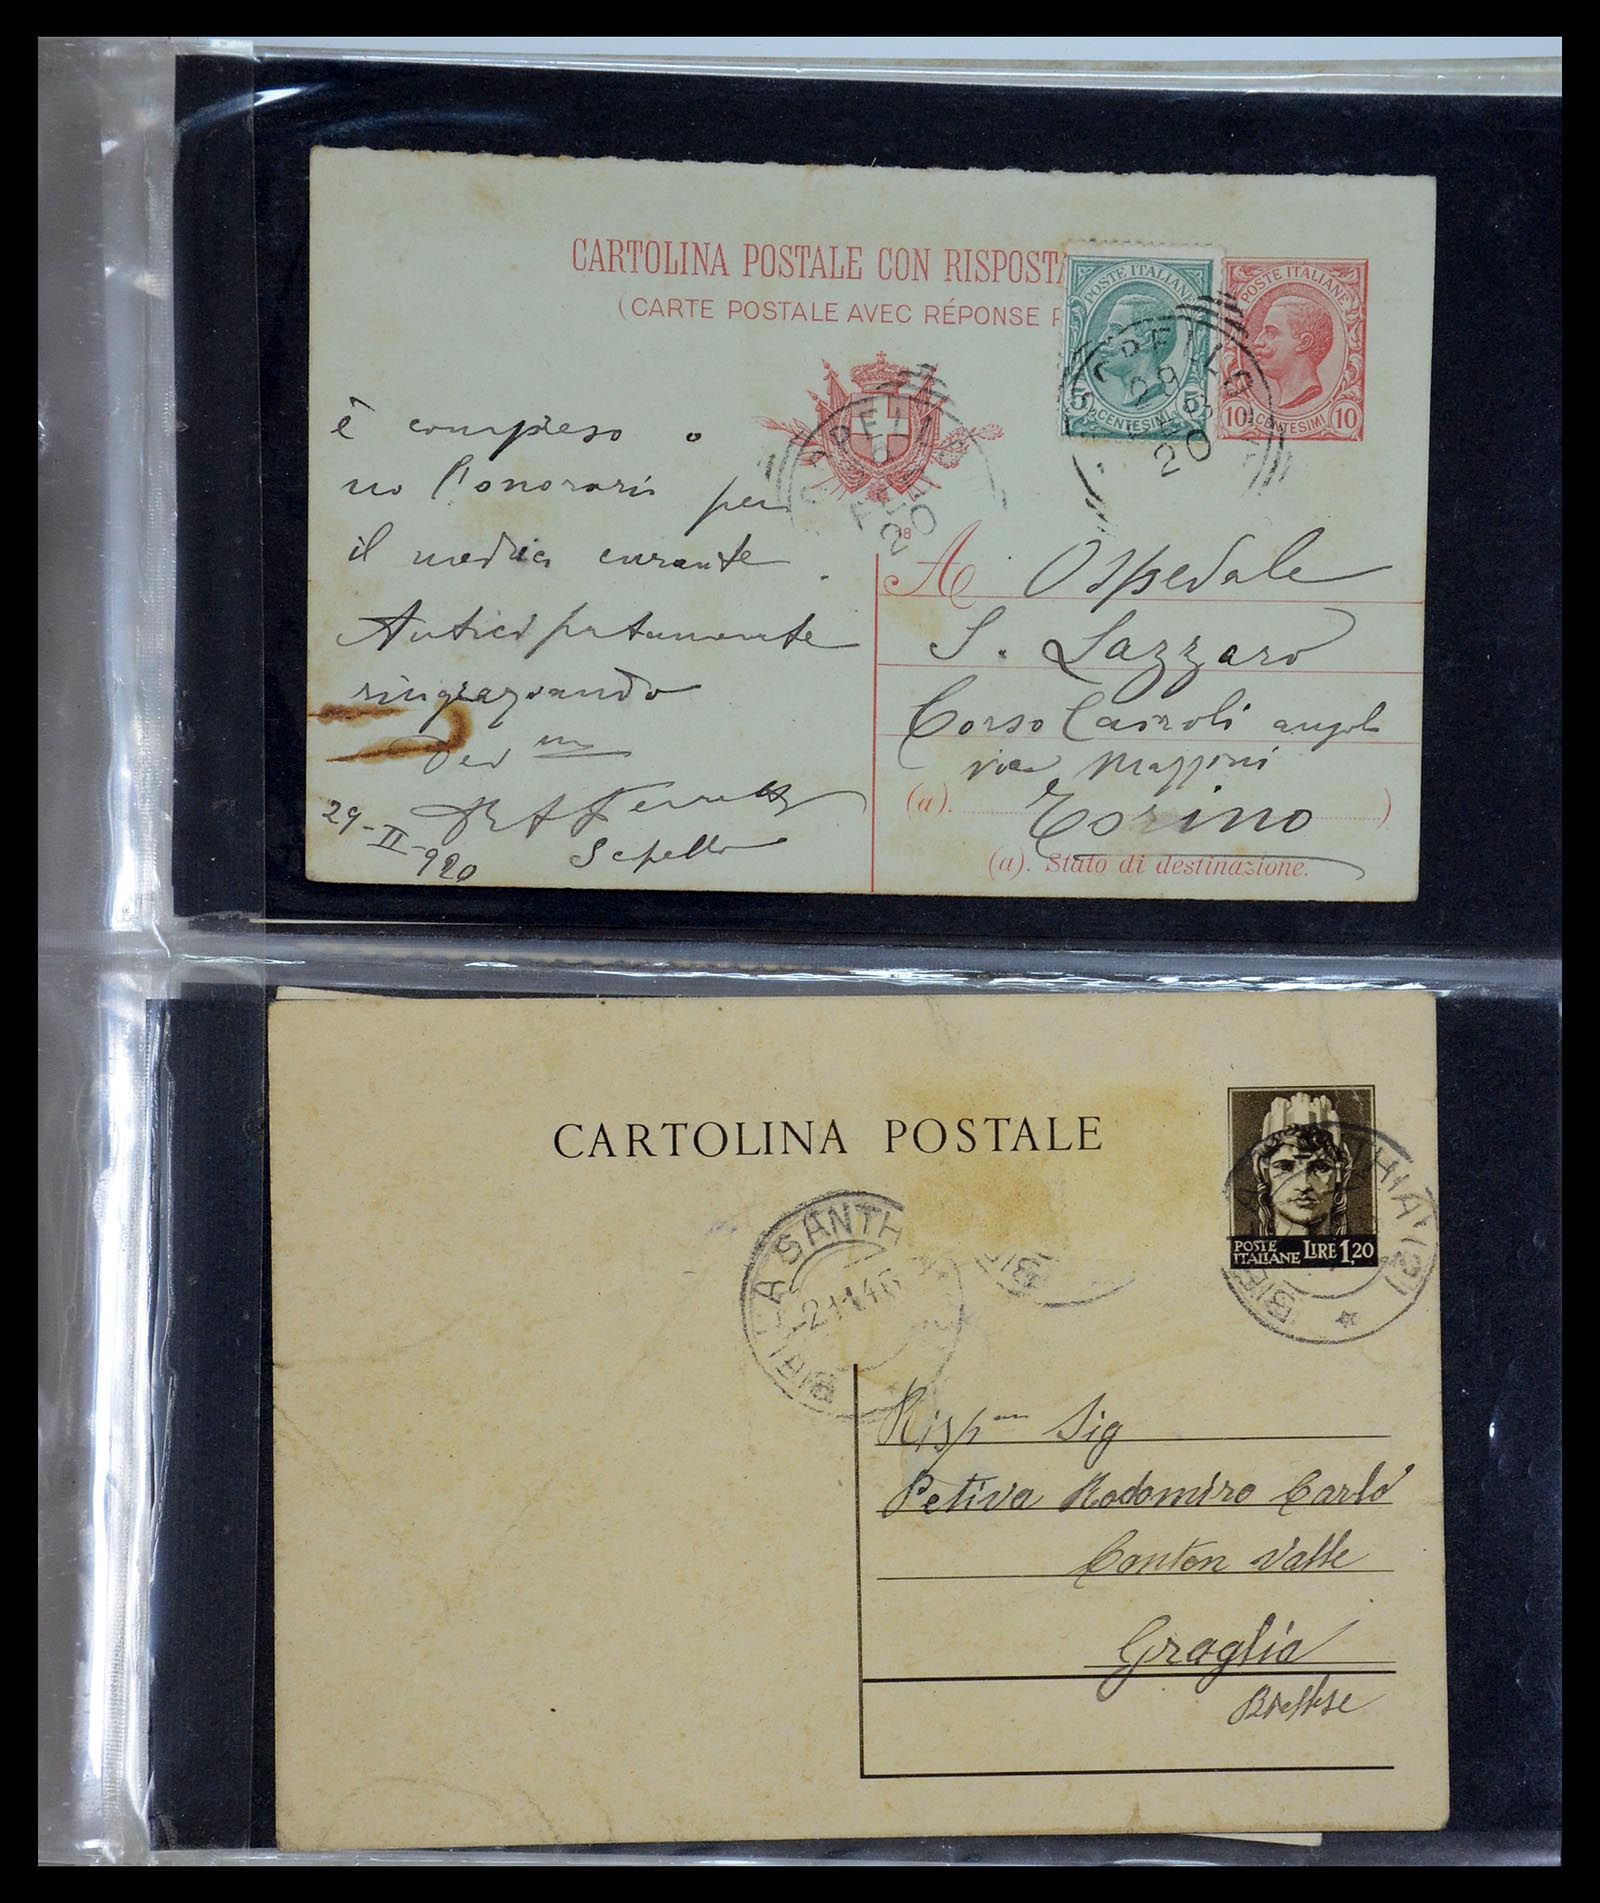 CARTOLINA POSTALE CON RISPOSTA
(CARTE POSTALE AVEC RÉPONSE P
POSTE ITALIANE
5 CENTESIMI 5
POSTE ITALIANE
10 CENTESIMI 10
è compreso o
no l'onorario per
il medico curante.
Anticipatamente
ringraziando
Dev mo
29-II-920
18
A Ospedale
S. Lazzaro
Corso Cairoli angolo
via Mazzini
(a). Torino )
(a). Stato di destinazione.
CARTOLINA POSTALE
POSTE ITALIANE LIRE 1,20
SANTH
-2.11.46
Risp Sig
Petiva Rodomiro Carlo
Canton Valle
Graglia
Biellese